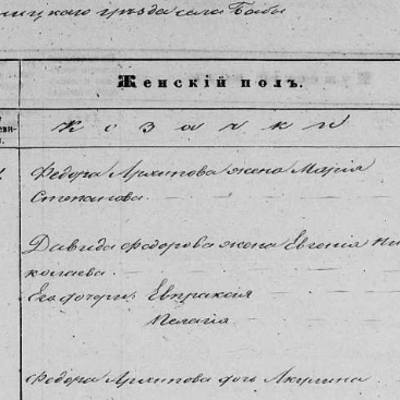 ницкаго уѣзда села Бабы
Женскій полъ.
Козачки
Федора Архипова жена Марія
Степанова
Давида Федорова жена Евгенія Ни
колаева
Его дочери: Евпраксія
Пелагія
Федора Архипова дочь Акулина